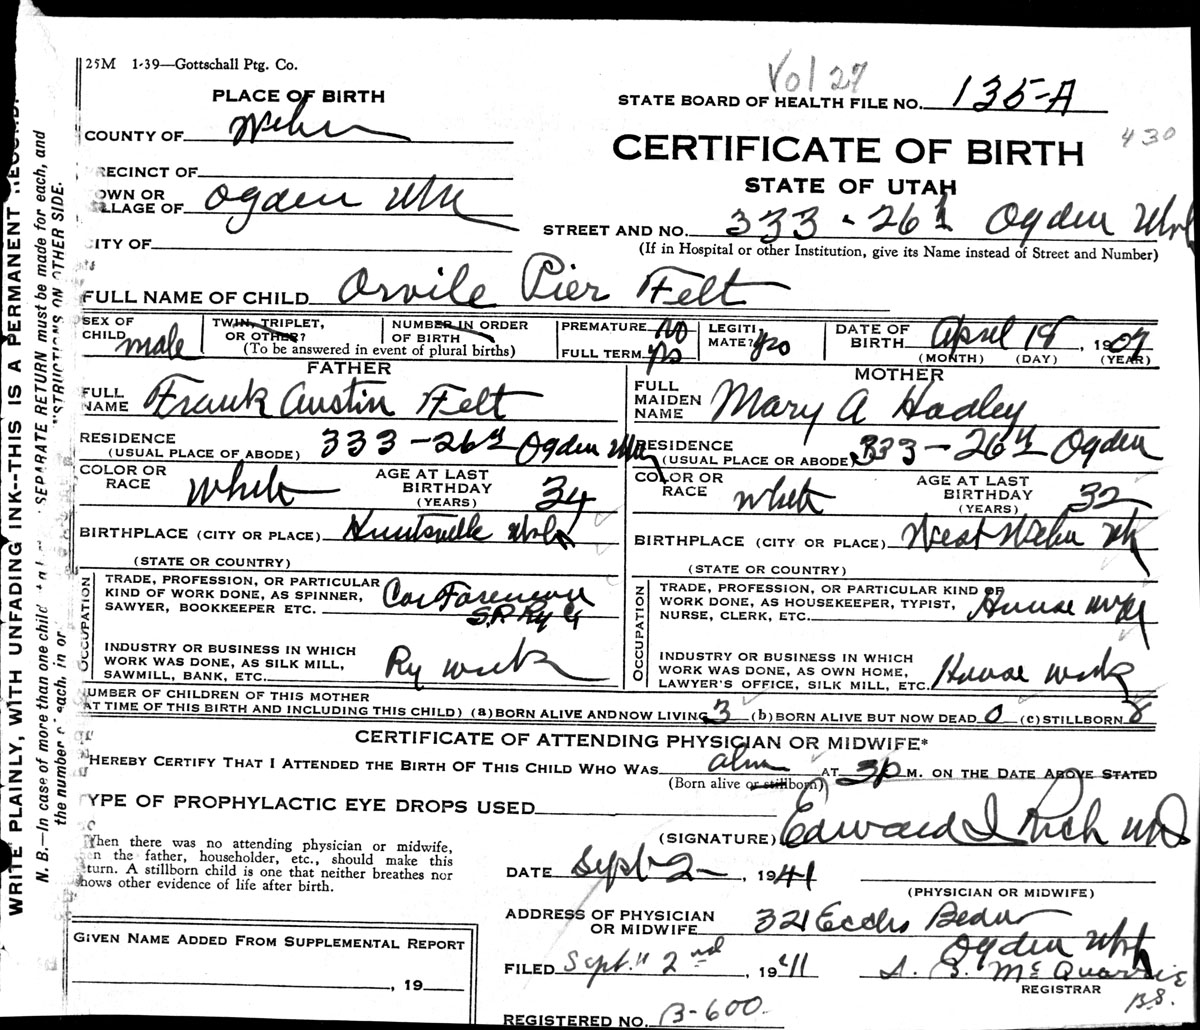 25M 1-39—Gottschall Ptg. Co.
Vol 27
PLACE OF BIRTH
STATE BOARD OF HEALTH FILE NO. 135-A
COUNTY OF Weber
430
CERTIFICATE OF BIRTH
STATE OF UTAH
RECINCT OF
OWN OR
LLAGE OF Ogden Utah
STREET AND NO. 333 - 26th Ogden Utah
CITY OF
(If in Hospital or other Institution, give its Name instead of Street and Number)
FULL NAME OF CHILD Orvile Pier Felt
SEX OF CHILD male
TWIN, TRIPLET, OR OTHER?
NUMBER IN ORDER OF BIRTH
(To be answered in event of plural births)
PREMATURE No
FULL TERM yes
LEGITIMATE? yes
DATE OF BIRTH April 19, 1907
(MONTH) (DAY) (YEAR)
FATHER
FULL NAME Frank Austin Felt
RESIDENCE (USUAL PLACE OF ABODE) 333 - 26th Ogden Utah
COLOR OR RACE White
AGE AT LAST BIRTHDAY (YEARS) 34
BIRTHPLACE (CITY OR PLACE) Huntsville Utah
(STATE OR COUNTRY)
OCCUPATION
TRADE, PROFESSION, OR PARTICULAR
KIND OF WORK DONE, AS SPINNER,
SAWYER, BOOKKEEPER ETC. Car Foreman
S.P. Ry
INDUSTRY OR BUSINESS IN WHICH
WORK WAS DONE, AS SILK MILL,
SAWMILL, BANK, ETC. Ry work
MOTHER
FULL MAIDEN NAME Mary A Hadley
RESIDENCE (USUAL PLACE OR ABODE) 333 - 26th Ogden
COLOR OR RACE White
AGE AT LAST BIRTHDAY (YEARS) 32
BIRTHPLACE (CITY OR PLACE) West Weber Utah
(STATE OR COUNTRY)
OCCUPATION
TRADE, PROFESSION, OR PARTICULAR KIND OF
WORK DONE, AS HOUSEKEEPER, TYPIST,
NURSE, CLERK, ETC. House
INDUSTRY OR BUSINESS IN WHICH
WORK WAS DONE, AS OWN HOME,
LAWYER'S OFFICE, SILK MILL, ETC. House work
NUMBER OF CHILDREN OF THIS MOTHER
AT TIME OF THIS BIRTH AND INCLUDING THIS CHILD) (a) BORN ALIVE AND NOW LIVING 3 (b) BORN ALIVE BUT NOW DEAD 0 (c) STILLBORN
CERTIFICATE OF ATTENDING PHYSICIAN OR MIDWIFE*
HEREBY CERTIFY THAT I ATTENDED THE BIRTH OF THIS CHILD WHO WAS alive AT 3 P M. ON THE DATE ABOVE STATED
(Born alive or stillborn)
TYPE OF PROPHYLACTIC EYE DROPS USED
(SIGNATURE) Edward I Rich MD
When there was no attending physician or midwife,
en the father, householder, etc., should make this
turn. A stillborn child is one that neither breathes nor
hows other evidence of life after birth.
DATE Sept 2, 1941
(PHYSICIAN OR MIDWIFE)
ADDRESS OF PHYSICIAN OR MIDWIFE 321 Eccles
Ogden Utah
GIVEN NAME ADDED FROM SUPPLEMENTAL REPORT
, 19
FILED Sept. 2nd 1941
McQuarrie
REGISTRAR
B.S.
REGISTERED NO. B-600
WRITE PLAINLY, WITH UNFADING INK--THIS IS A PERMANENT RECORD.
N. B.—In case of more than one child SEPARATE RETURN must be made for each, and
the number each, in or STRUCTIONS ON OTHER SIDE.